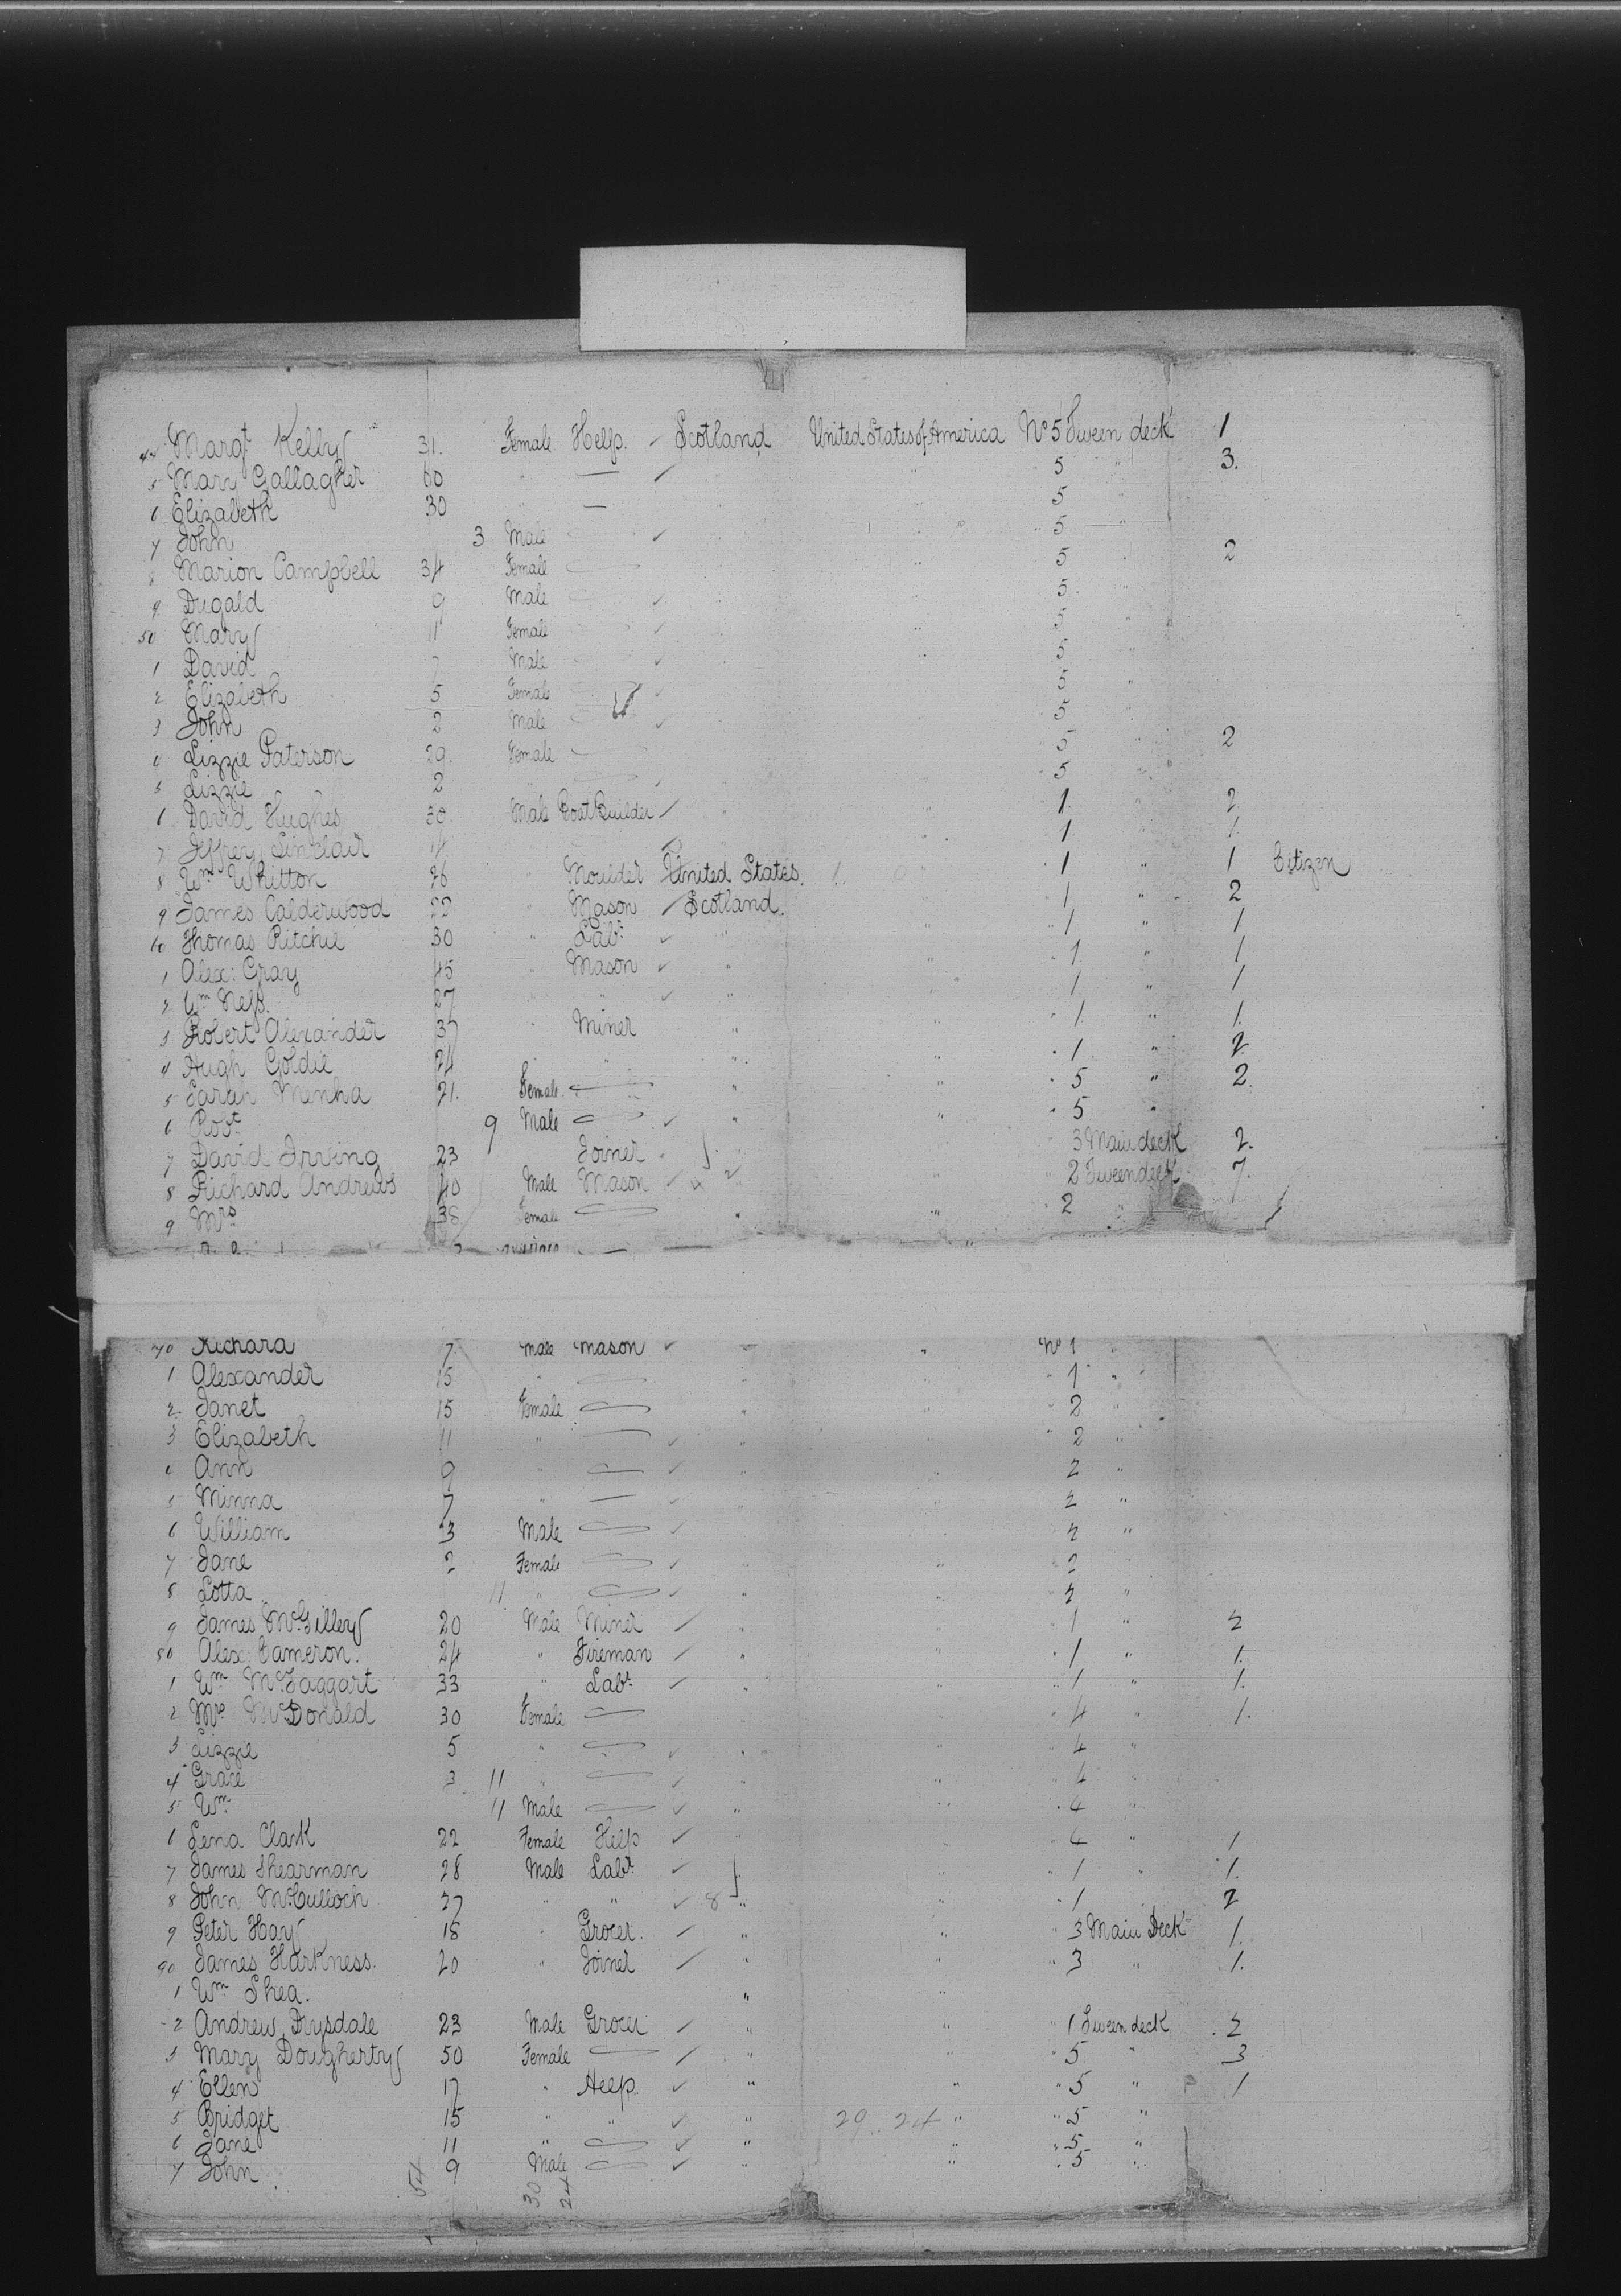 44 Margt Kelly 31. Female Help. ✓ Scotland United States of America No 5 Tween deck 1
5 Mary Gallagher 60 " — ✓ " 5 " 3.
6 Elizabeth 30 " — 5 "
7 John 3 Male — ✓ " 5 "
8 Marion Campbell 34 Female — " 5 " 2
9 Dugald 9 Male — ✓ " 5 "
50 Mary 11 Female — ✓ " 5 "
1 David Male — ✓ " 5 "
2 Elizabeth 5 Female — ✓ 5 "
3 John 2 Male — ✓ 5
4 Lizzie Paterson 29. Female — 5 " 2
5 Lizzie 2 — ✓ " 5 "
6 David Hughes 30. Male Boat Builder ✓ " " " 1. " 2
7 Jeffrey Sinclair " 1 1.
8 Wm Whitton 26 " Moulder United States. " 1 " 1 Citizen
9 James Calderwood 22 " Mason ✓ Scotland. " 1 " 2
60 Thomas Ritchie 30 " Labr ✓ " " " 1 " 1
1 Alex: Gray 45 " Mason ✓ " " " 1. " 1
2 Wm Nelson 27 " " ✓ " " 1 " 1
3 Robert Alexander 37 " Miner " " " 1. " 1.
4 Hugh Goldie 24 " " " " " 1. " 2
5 Sarah Menha 21. Female. — " " " 5 " 2.
6 Robt 9 Male — ✓ " " " 5 "
7 David Irving 23 Joiner " 3 Main deck 2.
8 Richard Andrews 40 Male Mason ✓ " " 2 Tween deck 7.
9 Mrs 38 Female — " " " 2 "
70 Richard 7 Male Mason ✓ " " No 1 "
1 Alexander 15 " — " " " 1 " "
2 Janet 15 Female — " " 2 "
3 Elizabeth 11 " — ✓ " " 2 "
4 Ann 9 " — ✓ " " 2 "
5 Minna 7 " — ✓ " " 2 "
6 William 3 Male — ✓ " 2 "
7 Jane 2 Female — ✓ " " 2
8 Lotta 11 " — ✓ " " " 2 "
9 James McGilley 20 Male Miner ✓ " " 1 " 2
80 Alex Cameron. 24 " Fireman ✓ " " " 1 " 1.
1 Wm McTaggart 33 " Labr ✓ " " " 1 " 1.
2 Mrs McDonald 30 Female — " " 4 " 1.
3 Lizzie 5 " — ✓ " " " 4 "
4 Grace 3 11 " — ✓ " " " 4 "
5 Wm 11 Male — ✓ " " " 4 "
6 Lena Clark 22 Female Help ✓ " " " 4 " 1
7 James Shearman 28 Male Labr ✓ " " 1 " 1.
8 John McCulloch 27 " " ✓ 8 " " " 1 2
9 Peter Hay 18 " Grocer. ✓ " " " 3 Main Deck 1.
90 James Harkness. 20 " Joiner ✓ " " " 3 " 1.
1 Wm Shea. " "
2 Andrew Drysdale 23 Male Grocer ✓ " " " 1 Tween deck 2
3 Mary Dougherty 50 Female — ✓ " " " 5 " 3
4 Ellen 17 " Help. ✓ " " " 5 " 1
5 Bridget 15 " " ✓ " 29 24 " " 5 "
6 Jane 11 " — ✓ " " " 5 "
7 John 9 Male — ✓ " " " 5 "
54 30 24